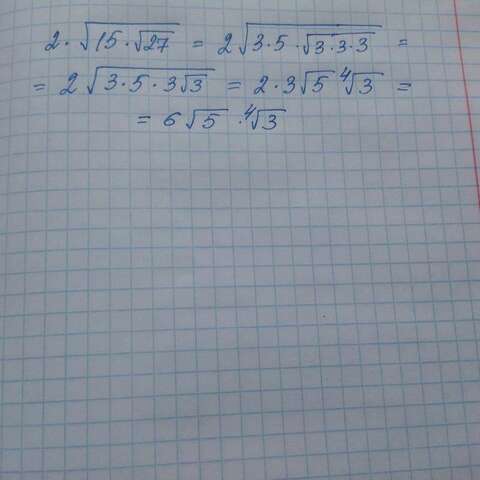 2·√(15·√27) = 2√(3·5·√(3·3·3)) =
= 2√(3·5·3√3) = 2·3√5 ∜3 =
= 6√5 ·∜3